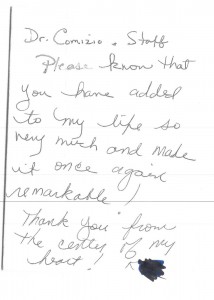 Dr. Comizio & Staff
Please know that
you have added
to my life so
very much and made
it once again
remarkable!
Thank you from
the center of my
heart!